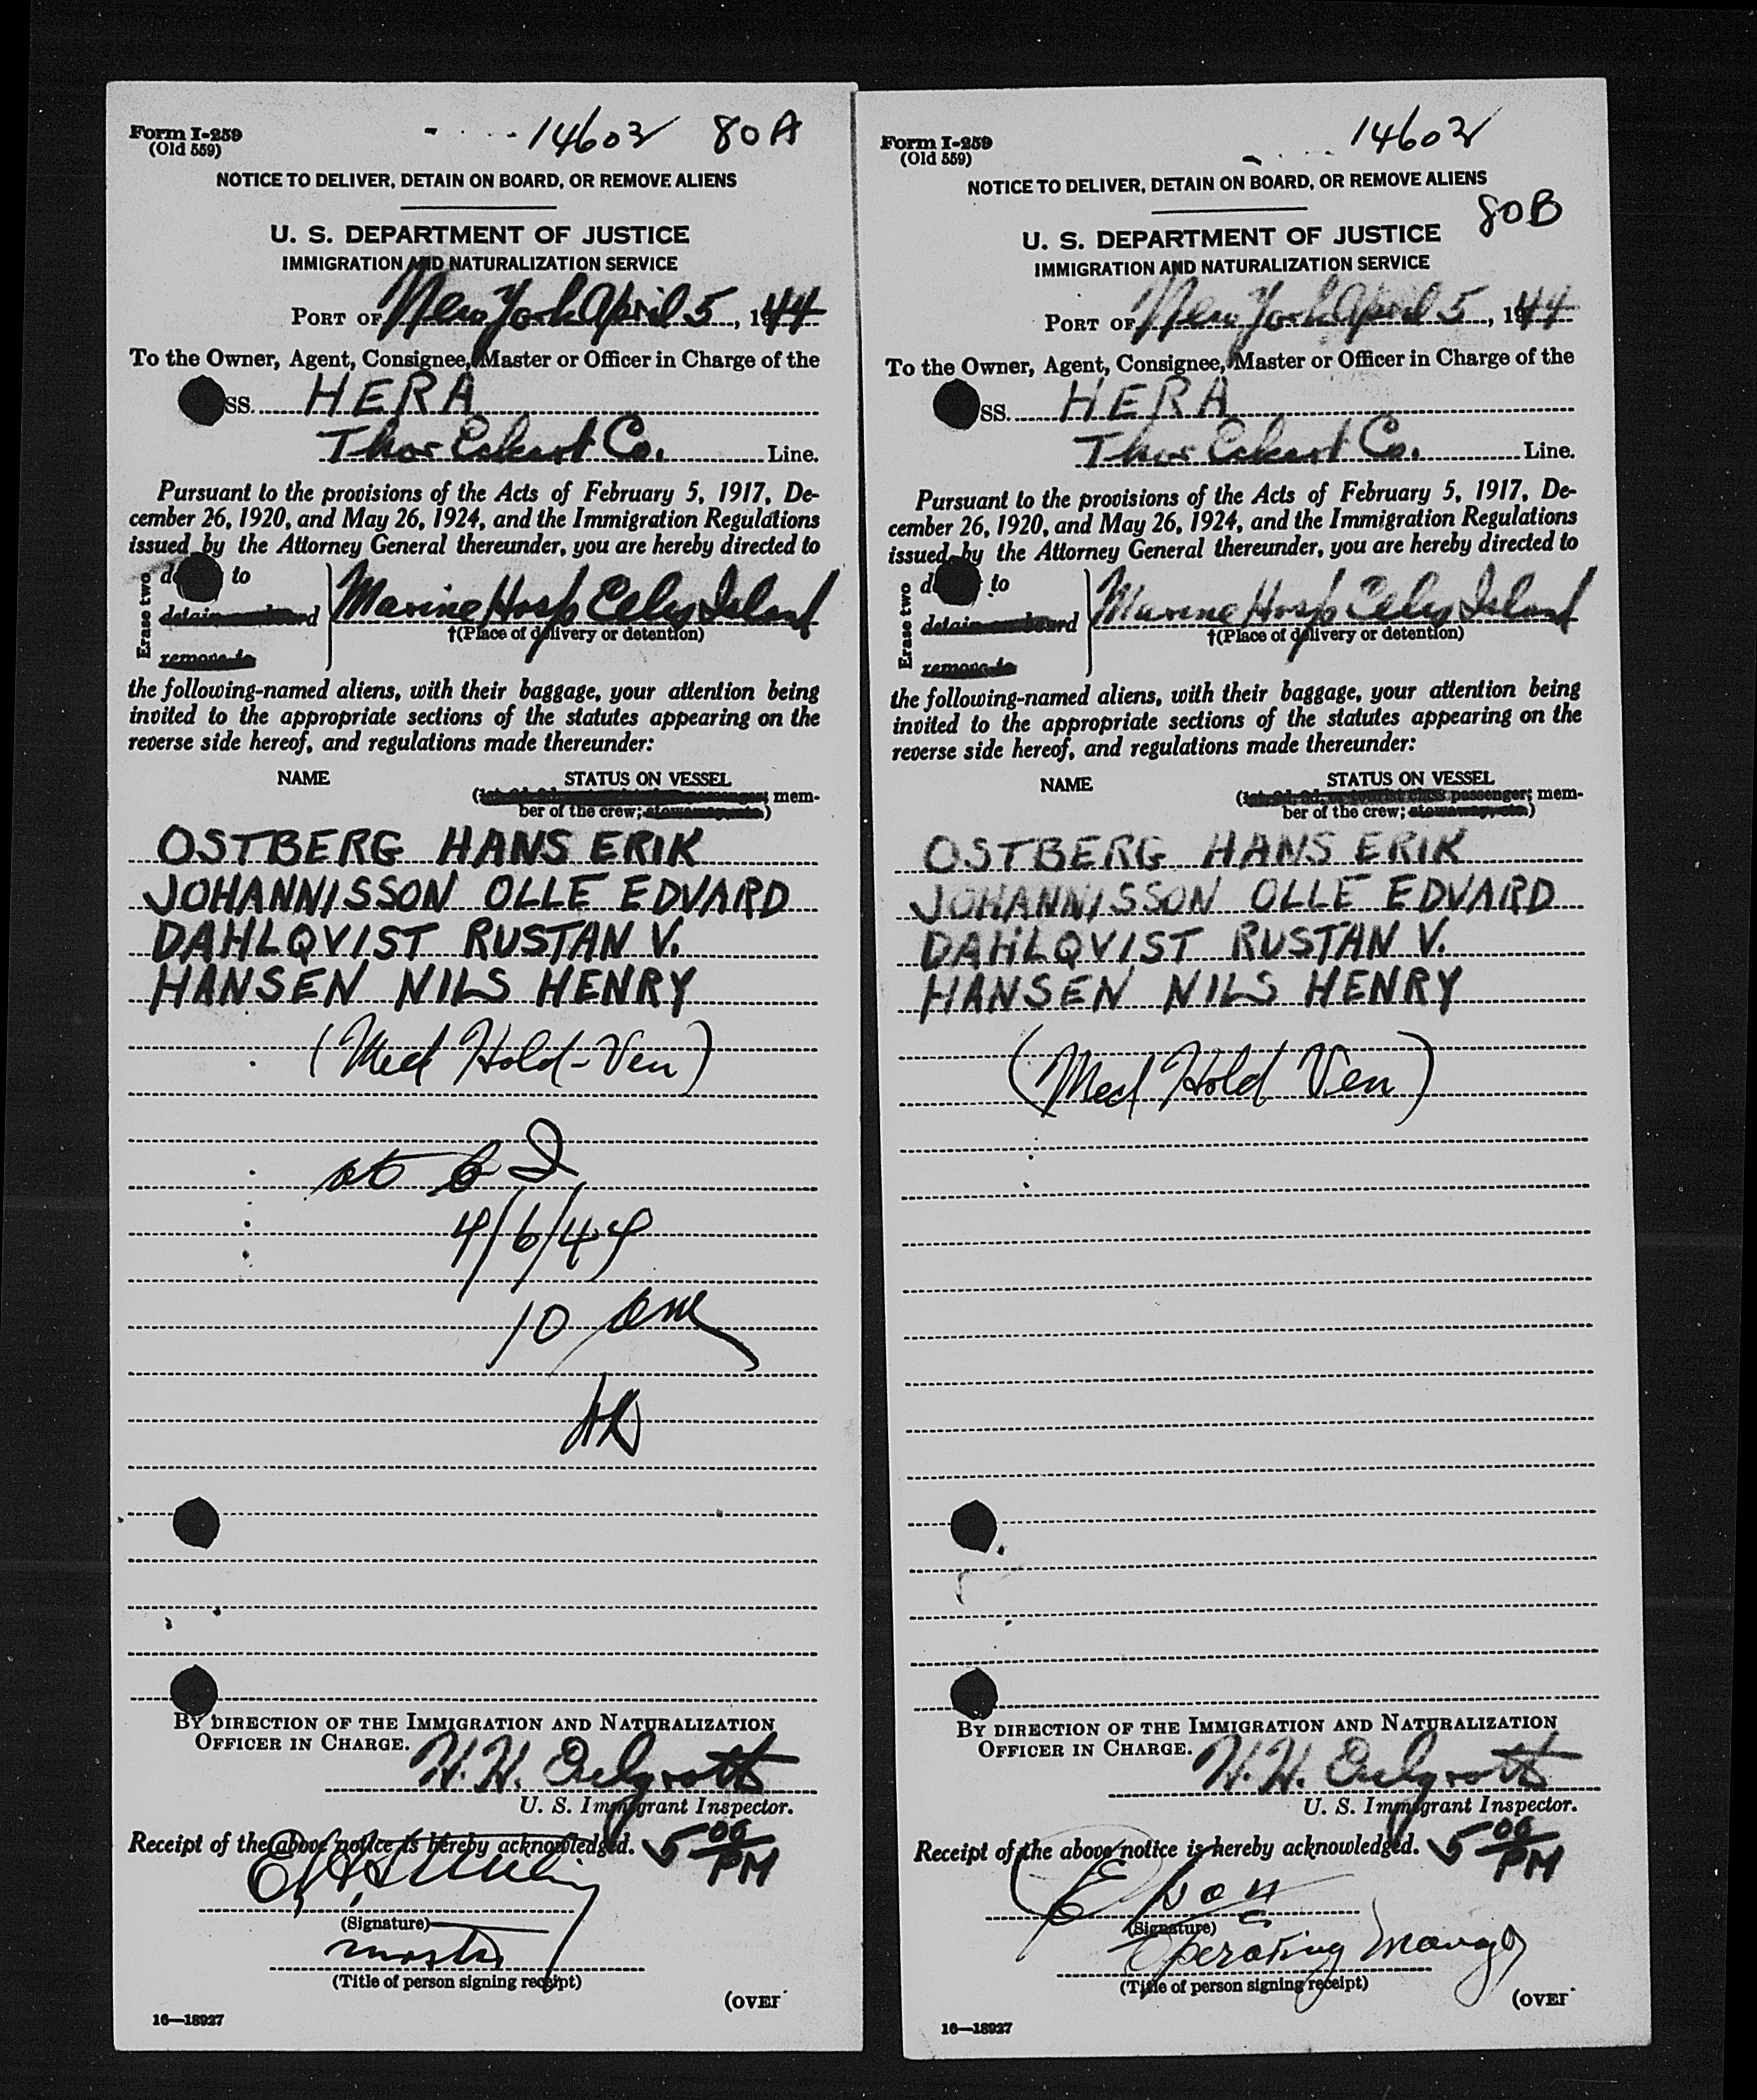 Form I-259
(Old 559)
14602 80A
NOTICE TO DELIVER, DETAIN ON BOARD, OR REMOVE ALIENS
U. S. DEPARTMENT OF JUSTICE
IMMIGRATION AND NATURALIZATION SERVICE
PORT OF New York April 5, 1944
To the Owner, Agent, Consignee, Master or Officer in Charge of the
SS. HERA
Thor Eckert Co. Line.
Pursuant to the provisions of the Acts of February 5, 1917, De-
cember 26, 1920, and May 26, 1924, and the Immigration Regulations
issued by the Attorney General thereunder, you are hereby directed to
Erase two
to
detain on board
remove to
Marine Hosp Ellis Island
†(Place of delivery or detention)
the following-named aliens, with their baggage, your attention being
invited to the appropriate sections of the statutes appearing on the
reverse side hereof, and regulations made thereunder:
NAME STATUS ON VESSEL
mem-
ber of the crew; stowaway, etc.)
OSTBERG HANS ERIK
JOHANNISSON OLLE EDVARD
DAHLQVIST RUSTAN V.
HANSEN NILS HENRY
(Med Hold-Ven)
at
4/6/44
10 am
BY DIRECTION OF THE IMMIGRATION AND NATURALIZATION
OFFICER IN CHARGE.
H. H.
U. S. Immigrant Inspector.
Receipt of the above notice is hereby acknowledged. 5 00 PM
(Signature)
master
(Title of person signing receipt)
(OVER
16—18927
Form I-259
(Old 559)
14602
80B
NOTICE TO DELIVER, DETAIN ON BOARD, OR REMOVE ALIENS
U. S. DEPARTMENT OF JUSTICE
IMMIGRATION AND NATURALIZATION SERVICE
PORT OF New York April 5, 1944
To the Owner, Agent, Consignee, Master or Officer in Charge of the
SS. HERA
Thor Eckert Co. Line.
Pursuant to the provisions of the Acts of February 5, 1917, De-
cember 26, 1920, and May 26, 1924, and the Immigration Regulations
issued by the Attorney General thereunder, you are hereby directed to
Erase two
to
detain on board
remove to
Marine Hosp Ellis Island
†(Place of delivery or detention)
the following-named aliens, with their baggage, your attention being
invited to the appropriate sections of the statutes appearing on the
reverse side hereof, and regulations made thereunder:
NAME STATUS ON VESSEL
(1st, 2d, 3d, or tourist class passenger; mem-
ber of the crew; stowaway, etc.)
OSTBERG HANS ERIK
JOHANNISSON OLLE EDVARD
DAHLQVIST RUSTAN V.
HANSEN NILS HENRY
(Med Hold Ven)
BY DIRECTION OF THE IMMIGRATION AND NATURALIZATION
OFFICER IN CHARGE.
H. H.
U. S. Immigrant Inspector.
Receipt of the above notice is hereby acknowledged. 5 00 PM
(Signature)
Operating Manager
(Title of person signing receipt)
(OVER
16—18927